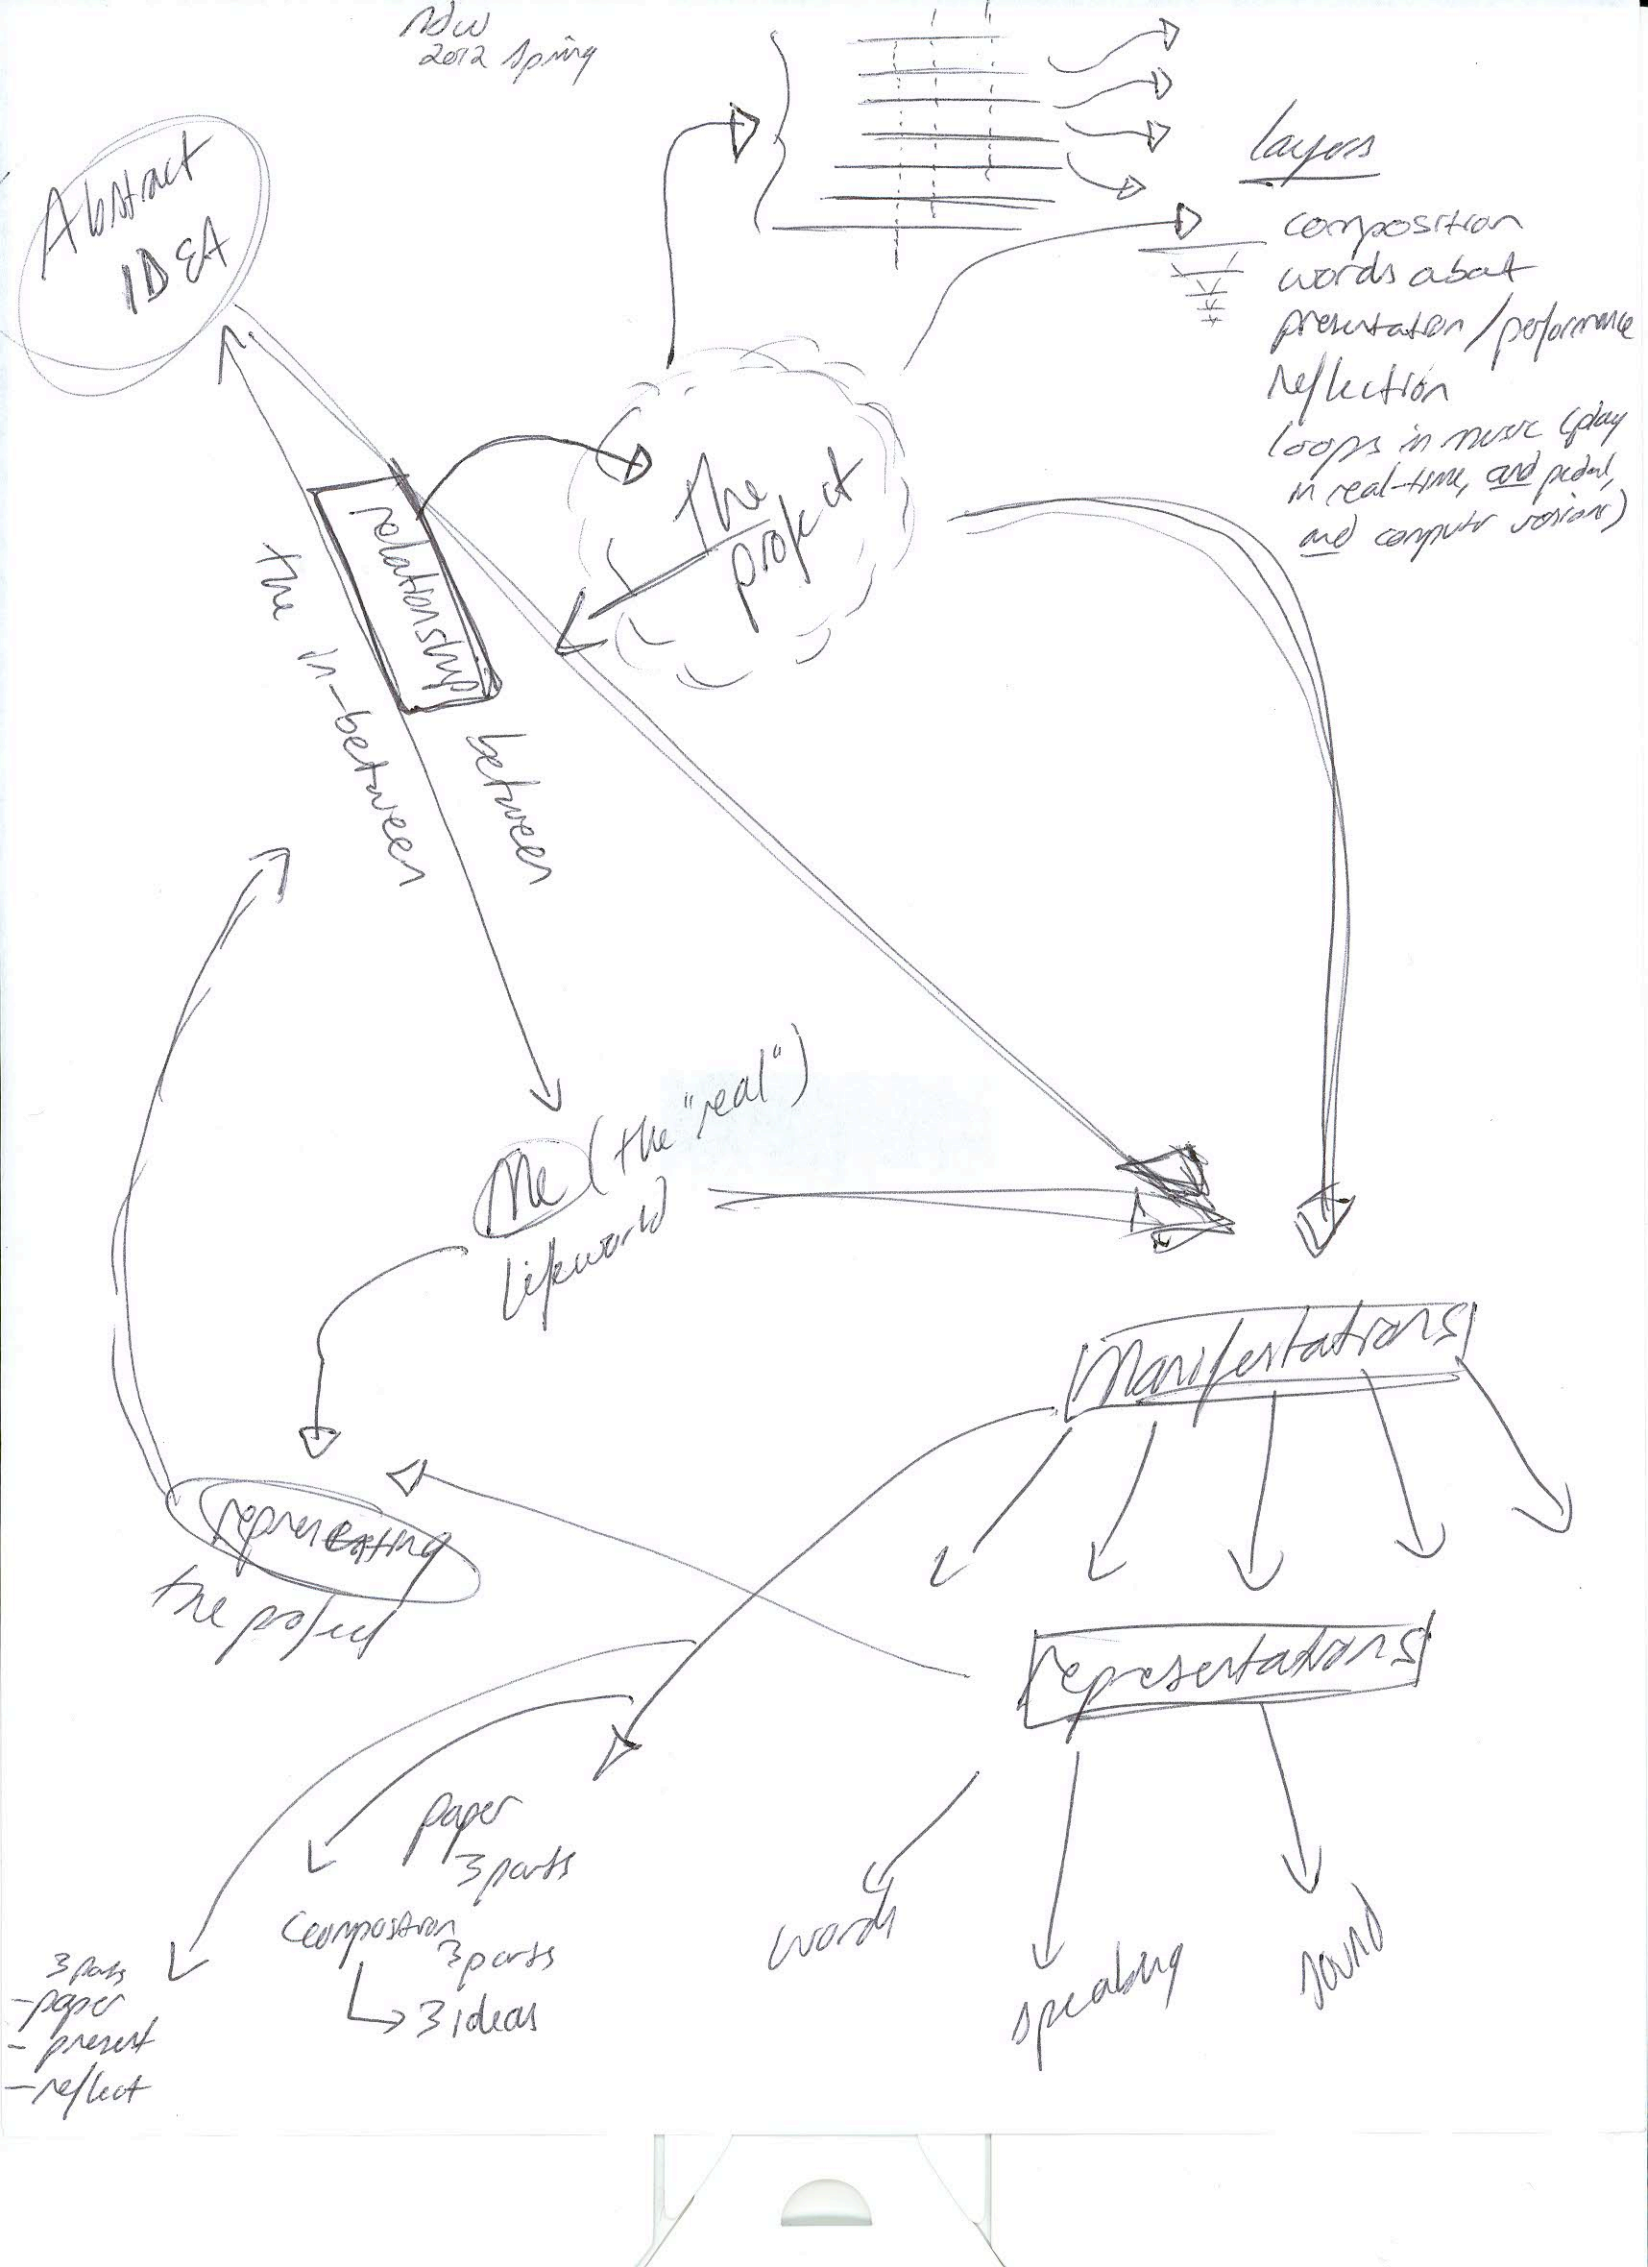 2012 Spring
layers
composition
words about
presentation/performance
reflection
loops in music (play
in real-time, and pedal,
and computer versions)
Abstract
IDEA
The
project
relationship
the in-between
between
Me (the "real")
lifeworld
Manifestations
representing
the project
representations
paper
3 parts
composition
3 parts
3 ideas
3 parts
-paper
- present
-reflect
words
speaking
sound